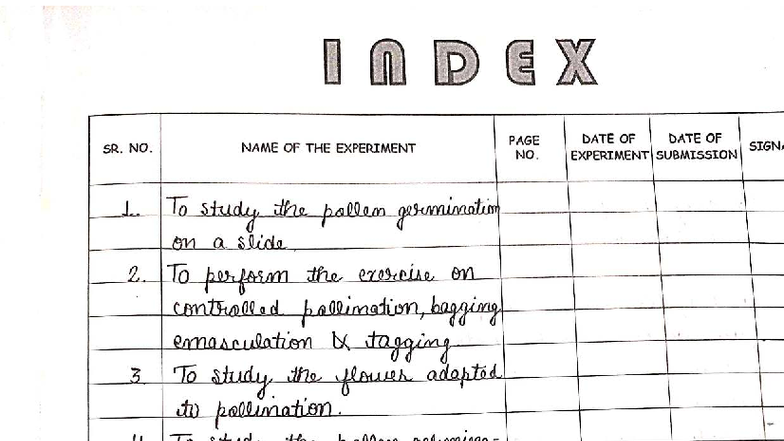 INDEX
SR. NO. NAME OF THE EXPERIMENT PAGE NO. DATE OF EXPERIMENT DATE OF SUBMISSION
1. To study the pollen germination
on a slide
2. To perform the exercise on
controlled pollination, bagging
emasculation & tagging
3 To study the flower adapted
to pollination.
4. To study the pollen